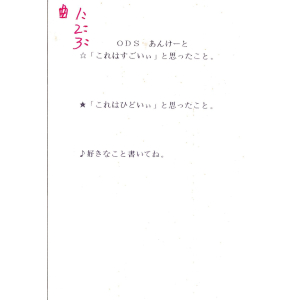 1:
2:
3:
ODS あんけーと
☆「これはすごいぃ」と思ったこと。
★「これはひどいぃ」と思ったこと。
♪好きなこと書いてね。